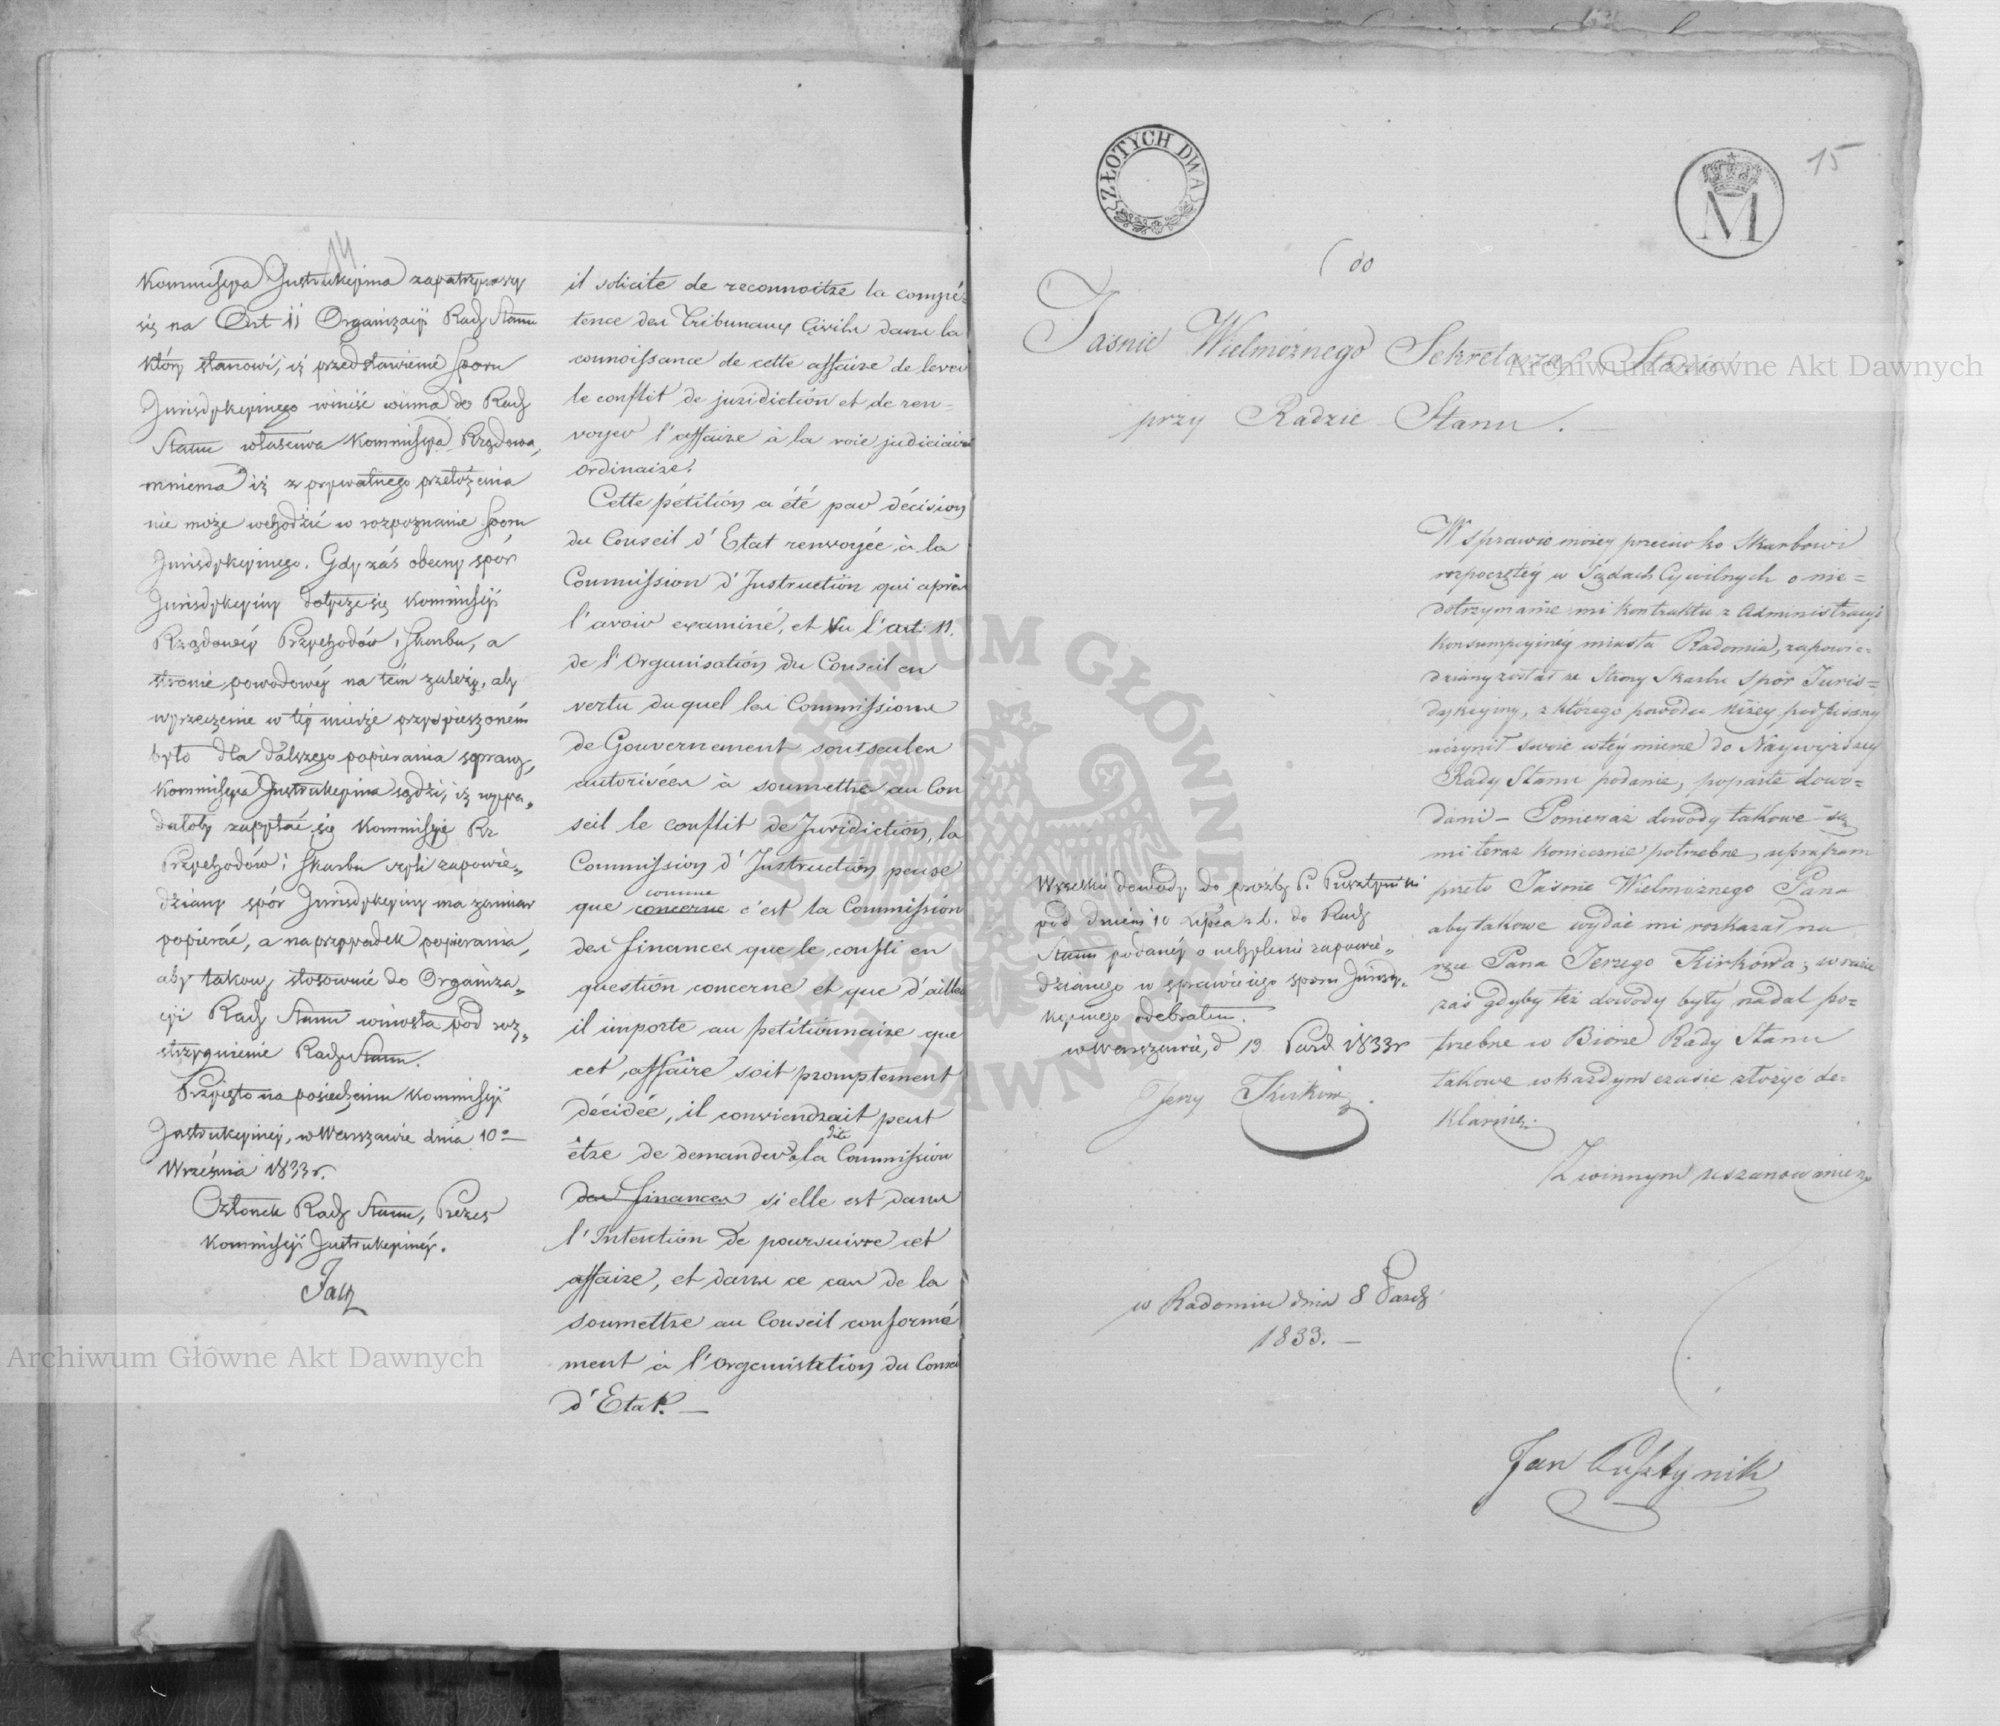 14
Kommissya Instrukcyina zapatrzywszy
się na Art 11 Organizacyi Rady Stanu
który stanowi, iż przedstawienie sporu
Jurisdykcyinego winiść winna do Rady
Stanu właściwa Kommissya Rządowa,
mniema iż z prywatnego przełożenia
nie może wchodzić w rozpoznanie sporu
Jurisdykcyinego. Gdy zaś obecny spór
Jurisdykcyiny dotycze się Kommissyi
Rządowéy Przychodów i Skarbu, a
stronie powodowéy na tém zależy, aby
wyrzeczenie w téy mierze przyspieszoném
było dla dalszego popierania sprawy,
Kommissya Instrukcyina sądzi, iż wypa„
dałoby zapytać się Kommissyi Rz
Przychodów i Skarbu czyli zapowie„
dziany spór Jurisdykcyiny ma zamiar
popierać, a na przypadek popierania,
aby takowy stosownie do Organiza„
cyi Rady Stanu wniosła pod roz„
strzygnienie Rady Stanu.
Przyięto na posiedzeniu Kommissyi
Instrukcyinéj, w Warszawie dnia 10o
Września 1833 r.
Członek Rady Stanu, Prezes
Kommissyi Instrukcyinéy.
il solicite de reconnoitre la compé=
tence des Tribunaux Civils dans la
connoissance de cette affaire de lever
le conflit de juridiction et de ren=
voyer l'affaire à la voie judiciaire
ordinaire.
Cette pétition a été par décision
du Conseil d'Etat renvoyée à la
Commission d'Instruction qui après
l'avoir examiné, et Vu l'art: 11.
de l'Organisation du Conseil en
vertu du quel les Commissions
de Gouvernement sont seules
autorisées à soumettre au Con
seil le conflit de Juridiction, la
Commission d'Instruction pense
comme
que concerne c'est la Commission
des finances que le confli en
question concerne et que d'ailleu
il importe au petitionnaire que
cet affaire soit promptement
décidée, il conviendrait peut
dite
être de demander à la Commission
des finances si elle est dans
l'Intention de poursuivre cet
affaire, et dans ce cas de la
soumettre au Conseil conformé
ment à l'organisation du Conseil
d'Etat. —
ZŁOTYCH DWA
M
15
do
Jaśnie Wielmożnego Sekretarza Stanu
przy Radzie Stanu. —
W sprawie moiéy przeciwko Skarbowi
rozpoczętéy w Sądach Cywilnych o nie=
dotrzymanie mi kontraktu z Administracyi
Konsumpcyinéy miasta Radomia, zapowie=
dziany został ze Strony Skarbu Spór Juris=
dykcyiny, z którego powodu niżéy podpisany
uczynił swoie w téy mierze do Naywyższéy
Rady Stanu podanie, poparte dowo=
dami — Ponieważ dowody takowe są
mi teraz koniecznie potrzebne, upraszam
przeto Jaśnie Wielmożnego Pana
aby takowe wydać mi rozkazał na
ręce Pana Jerzego Kirkówa; w razie
zaś gdyby też dowody były nadal po=
trzebne w Biórze Rady Stanu
takowe w każdym czasie złożyć de=
klaruię.
Z winnym uszanowaniem
Wszelkie dowody do prośby P. Pusztynika
pod dniem 10 Lipca r. b. do Rady
Stanu podanéy o uchylenie zapowie„
dzianego w sprawie iego sporu Jurisdy„
kcyinego odebrałem.
w Warszawie, d 19 Paźd 1833 r
Jerzy Kirków
w Radomiu dnia 8 Paźdz
1833. —
Jan Pusztynik
Archiwum Główne Akt Dawnych
Archiwum Główne Akt Dawnych
ARCHIWUM GŁÓWNE AKT DAWNYCH